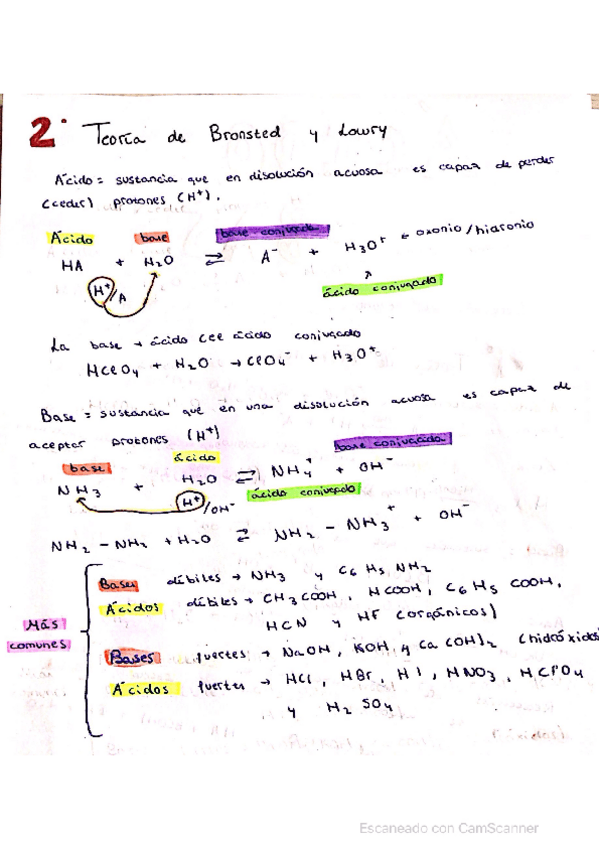 2. Teoría de Bronsted y Lowry
Ácido = sustancia que en disolución acuosa es capaz de perder
(ceder) protones (H⁺).
Ácido base base conjugada
HA + H₂O ⇄ A⁻ + H₃O⁺ ← oxonio/hidronio
H⁺/A ácido conjugado
La base → ácido del ácido conjugado
HClO₄ + H₂O → ClO₄⁻ + H₃O⁺
Base = sustancia que en una disolución acuosa es capaz de
aceptar protones (H⁺)
base ácido base conjugada
NH₃ + H₂O ⇄ NH₄⁺ + OH⁻
H⁺/OH⁻ ácido conjugado
NH₂ - NH₂ + H₂O ⇄ NH₂ - NH₃⁺ + OH⁻
Más comunes
Bases débiles → NH₃ y C₆H₅NH₂
Ácidos débiles → CH₃COOH, HCOOH, C₆H₅COOH,
HCN y HF (orgánicos)
Bases fuertes → NaOH, KOH y Ca(OH)₂ (hidróxidos
Ácidos fuertes → HCl, HBr, HI, HNO₃, HClO₄
y H₂SO₄
Escaneado con CamScanner